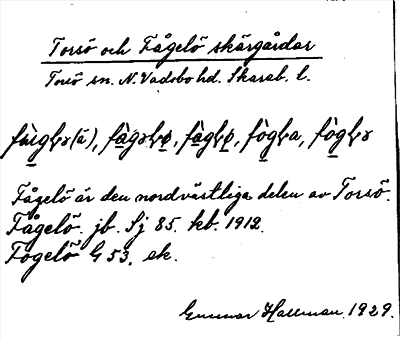 Torsö och Fågelö skärgårdar
Torsö sn. N. Vadsbo hd. Skarab. l.
Fågelö är den nordvästliga delen av Torsö.
Fågelö. jb. Sj 85. kb. 1912.
Fogelö G 53, ek.
Gunnar Hallman. 1929.